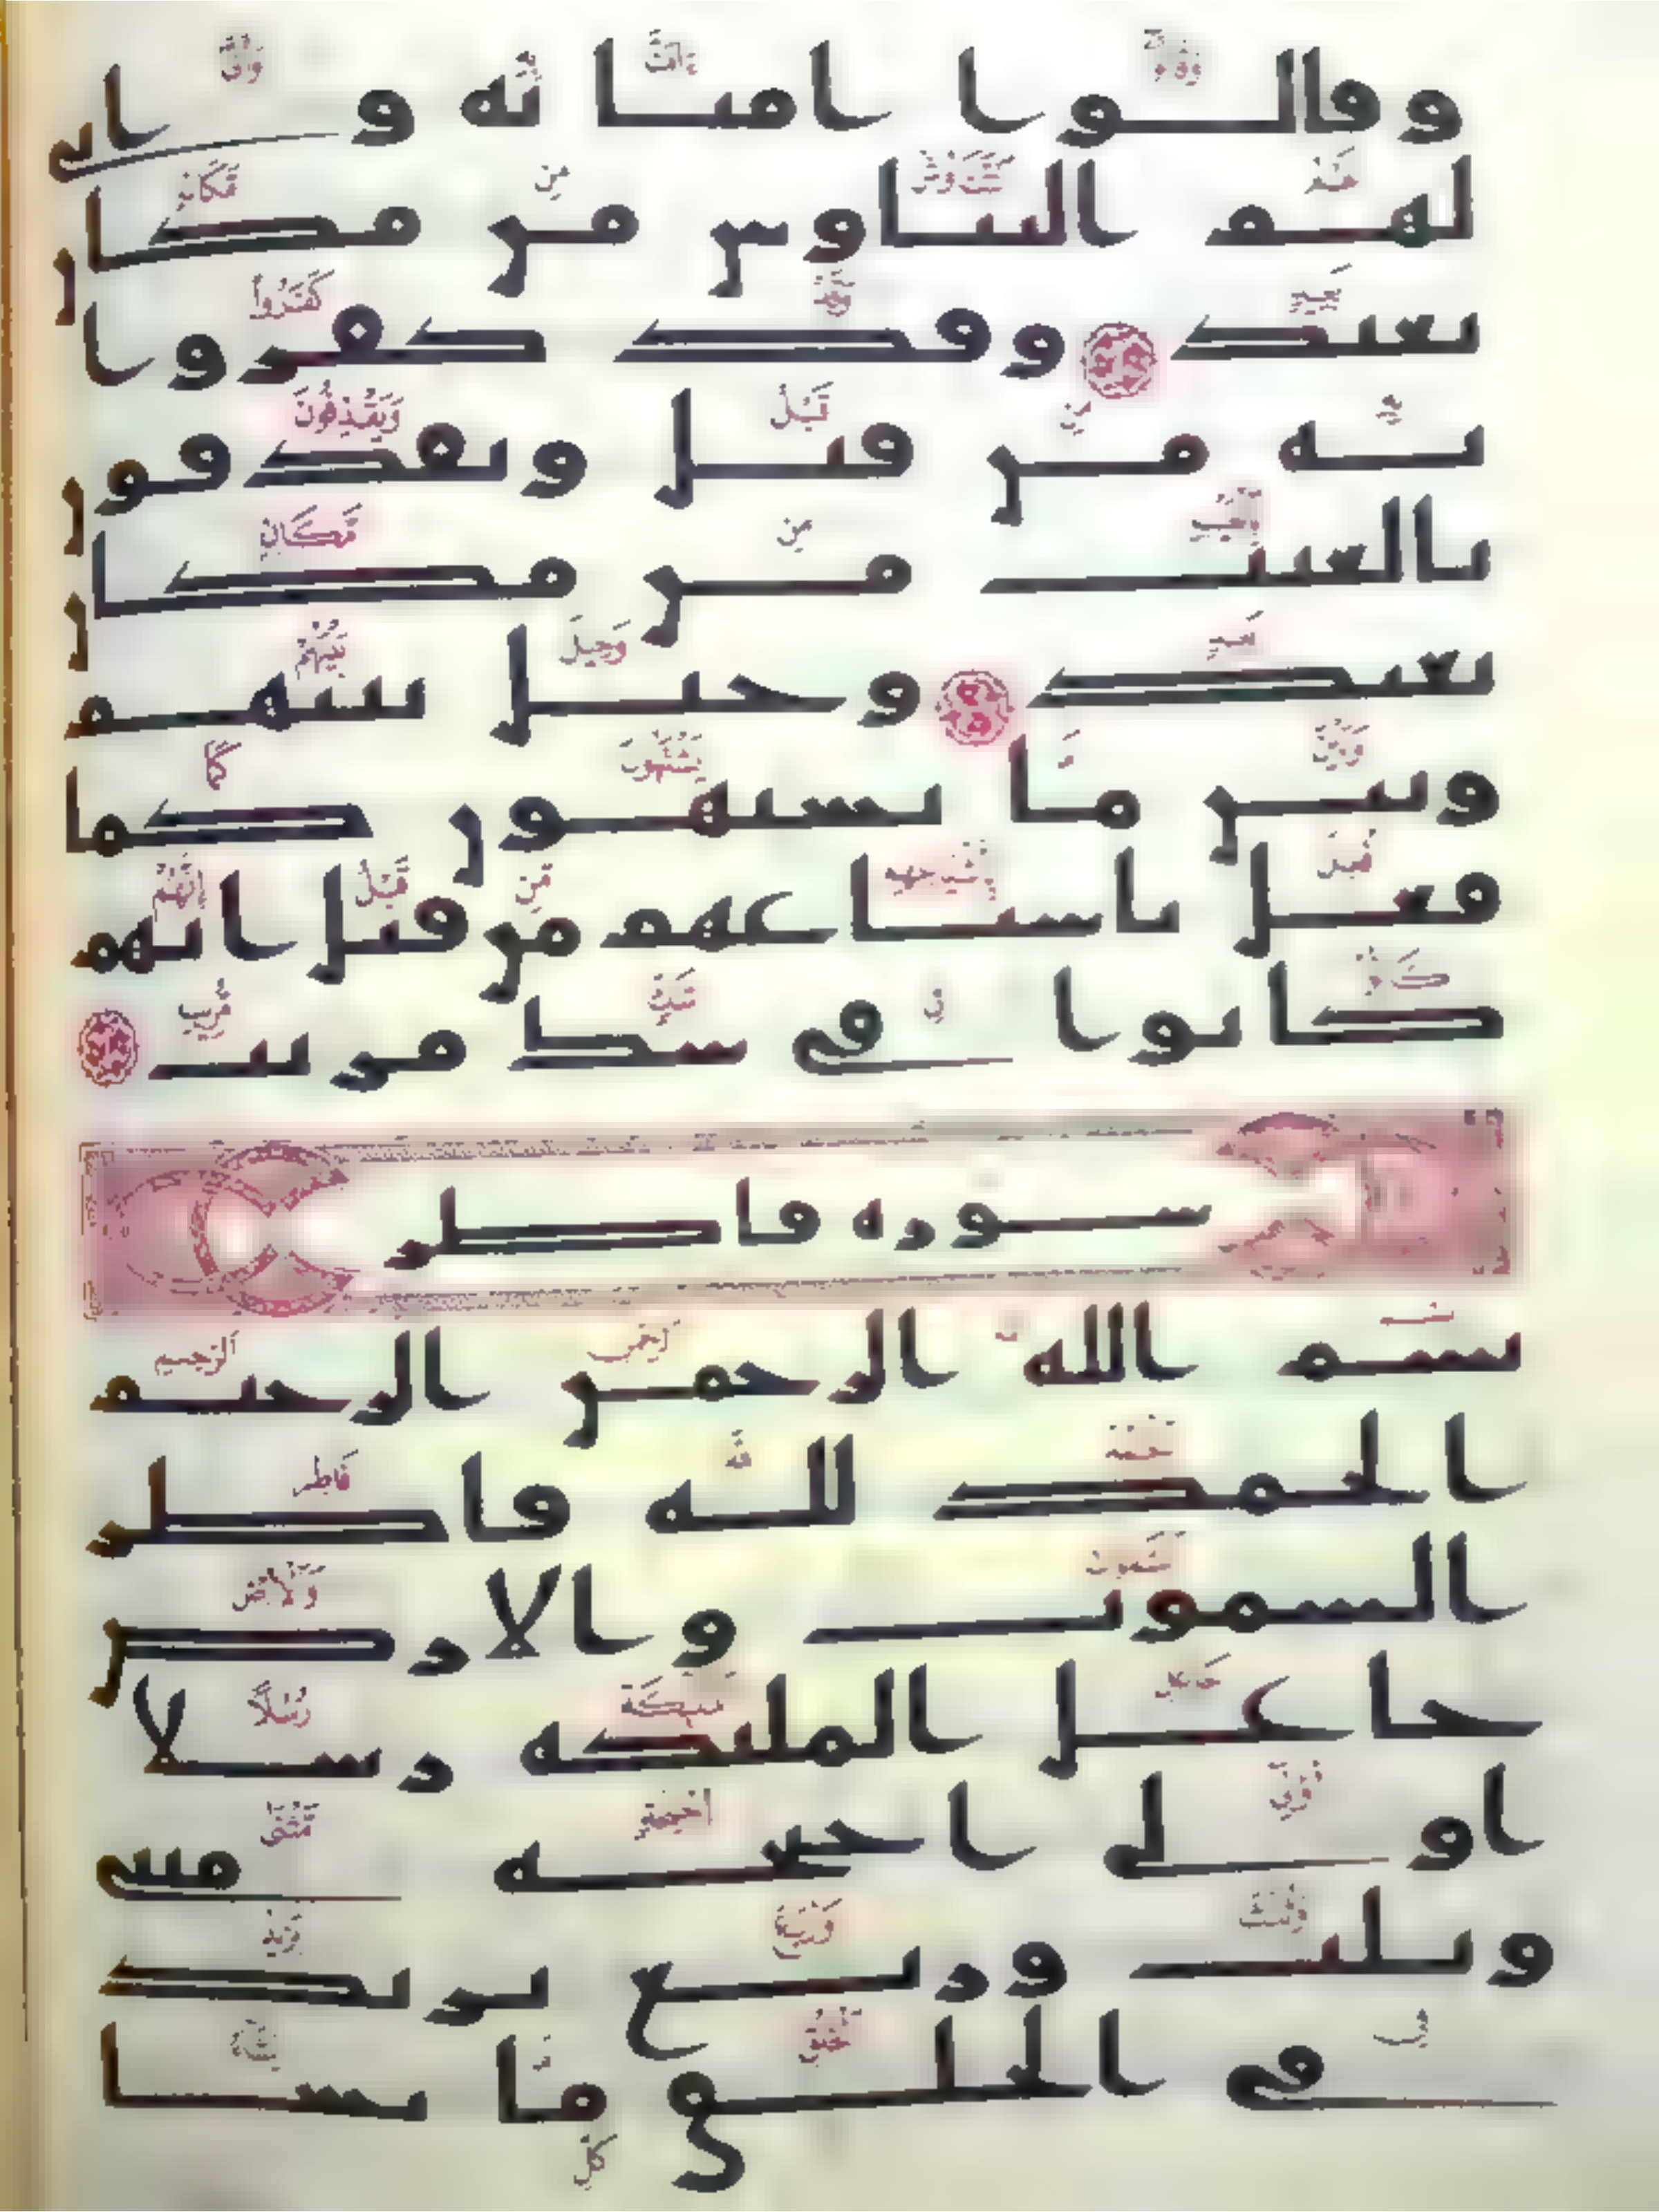 وقالوا امنا به و انى
لهم التناوش من مكان
بعيد وقد كفروا
به من قبل ويقذفون
بالغيب من مكان
بعيد وحيل بينهم
وبين ما يشتهون كما
فعل باشياعهم من قبل انهم
كانوا في شك مريب
سورة فاطر
بسم الله الرحمن الرحيم
الحمد لله فاطر
السموت والارض
جاعل الملئكة رسلا
اولي اجنحة مثنى
وثلث وربع يزيد
في الخلق ما يشا